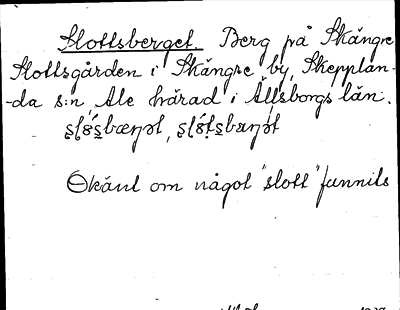 Slottsberget. Berg på Skångre
Slottsgården i Skångre by, Skepplan-
-da s:n, Ale härad i Älfsborgs län.
Okänt om något "slott" funnits